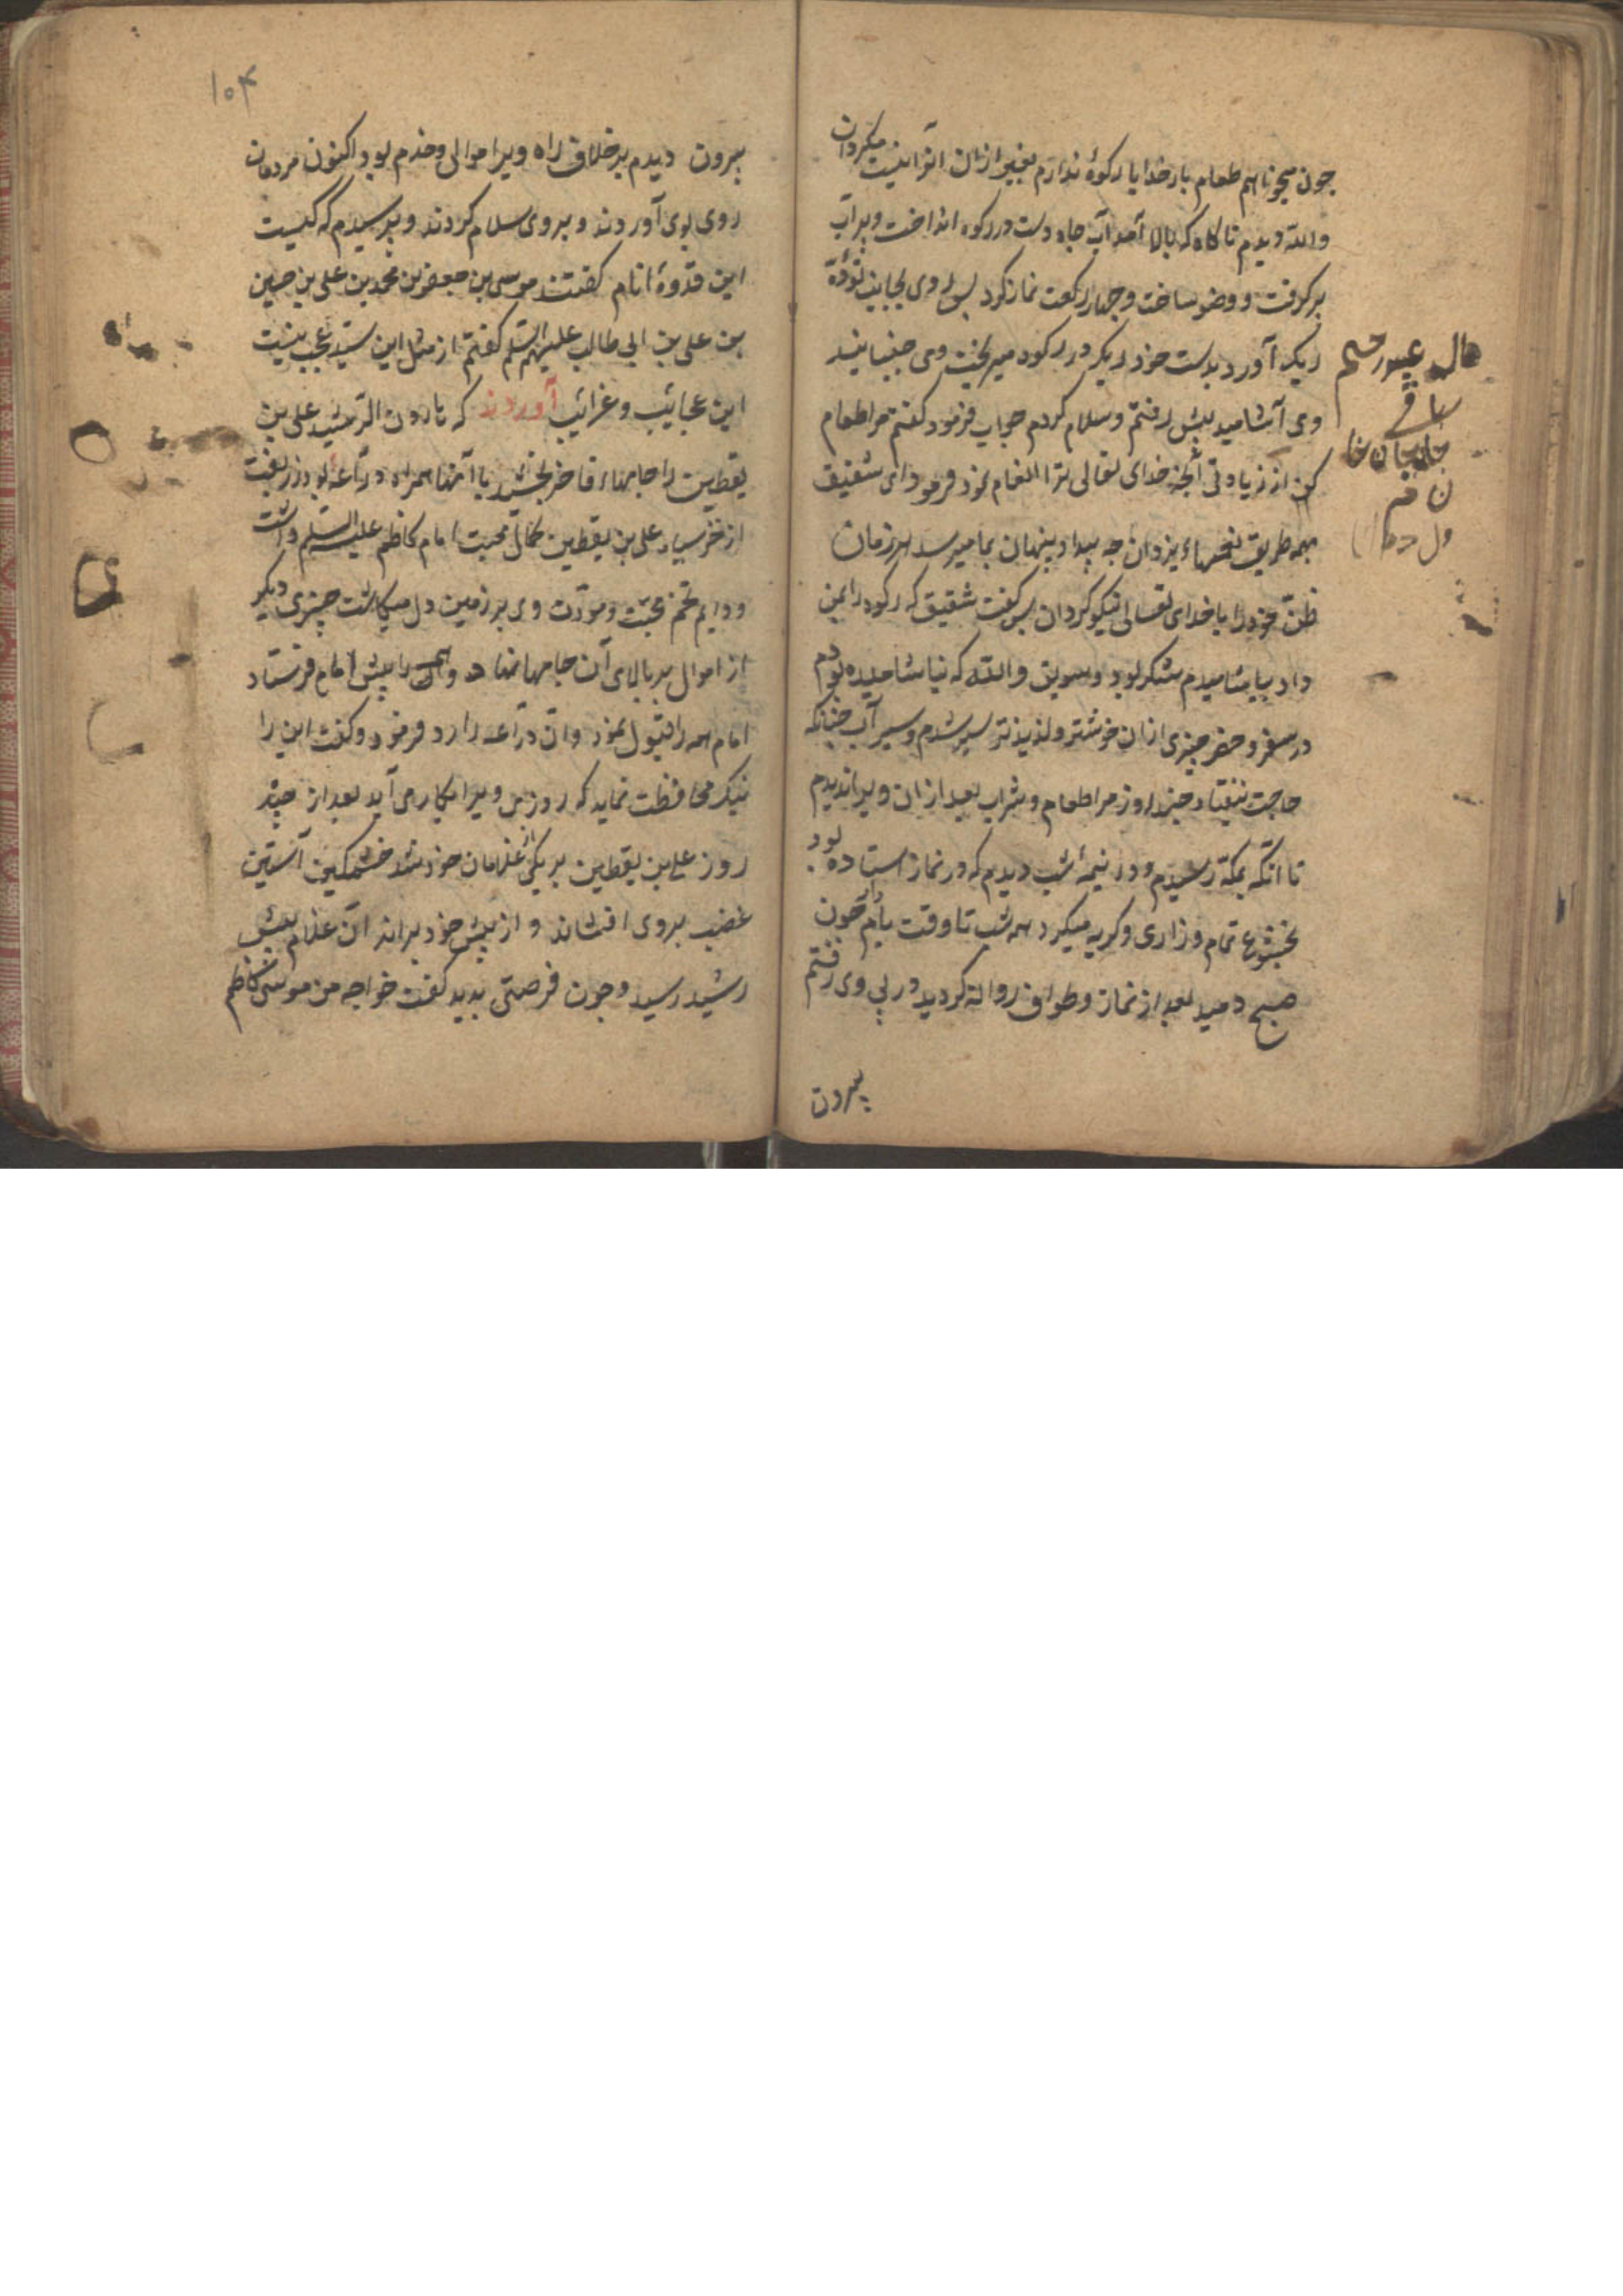 چون میخواهم طعام بار خدایا رکوهٔ ندارم بغیر ازان انرا نیست مگردان
والله دیدم ناگاه که بالا آمد آب چاه دست در رکوه انداخت و پر آب
برکرفت و وضو ساخت و چهار رکعت نماز کرد پس روی بجانب تودهٔ
ریک آورد بدست خود ریک در رکوه میریخت و می جنبانید
و می آشامید پیش رفتم و سلام کردم جواب فرمود کفتم مرا طعام
کن از زیادتی آنچه خدای تعالی ترا انعام نمود فرمود ای شقیق
همه طریق نعمتهاء یزدان چه پیدا و پنهان بما میرسد هر زمان
ظنّ خود را با خدای تعالی نیکو کردان پس کفت شقیق که رکوه را بمن
داد بیاشامیدم شکر بود و سویق والله که نیاشامیده بودم
در سفر و حضر چیزی ازان خوشتر و لذیذتر سیر شدم و سیر آب چنانکه
حاجت نیفتاد چند روز مرا طعام و شراب بعد ازان ویرا ندیدم
تا آنکه بمکّه رسیدم و در نیمهٔ شب دیدم که در نماز استاده بود
بخشوع تمام و زاری و کریه میکرد همه شب تا وقت بام چون
صبح دمید بعد از نماز و طواف روانه کردید در پی وی رفتم
بیرون
ساقی
۱۰۴
بیرون دیدم بر خلاف راه ویرا موالی و خدم بود اکنون مردمان
روی بوی آوردند و بروی سلام کردند و پرسیدم که کیست
این قدوهٔ انام کفتند موسی بن جعفر بن محمد بن علی بن حسین
بن علی بن ابی طالب علیهم السلم کفتم از مثل این سیّد عجب نیست
این عجائب و غرائب آوردند که هارون الرشید علی بن
یقطین را جامهاء فاخر بخشید با آنها همراه درّاعهٔ بود زربفت
از خز سیاه علی بن یقطین کمال محبت امام کاظم علیه السلم داشت
و دایم تخم محبّت و مودّت وی بر زمین دل میکاشت چیزی دیکر
از اموال بر بالای آن جامها نهاد و همه را پیش امام فرستاد
امام همه را قبول نمود و آن درّاعه را رد فرمود و کفت این را
نیک محافظت نماید که روزی ویرا بکار می آید بعد از چند
روز علی بن یقطین بر یکی از غلامان خود شد خشمکین آستین
غضب بروی افشاند و از پیش خود براند آن غلام پیش
رشید رسید و چون فرصتی بدید کفت خواجه من موسی کاظم